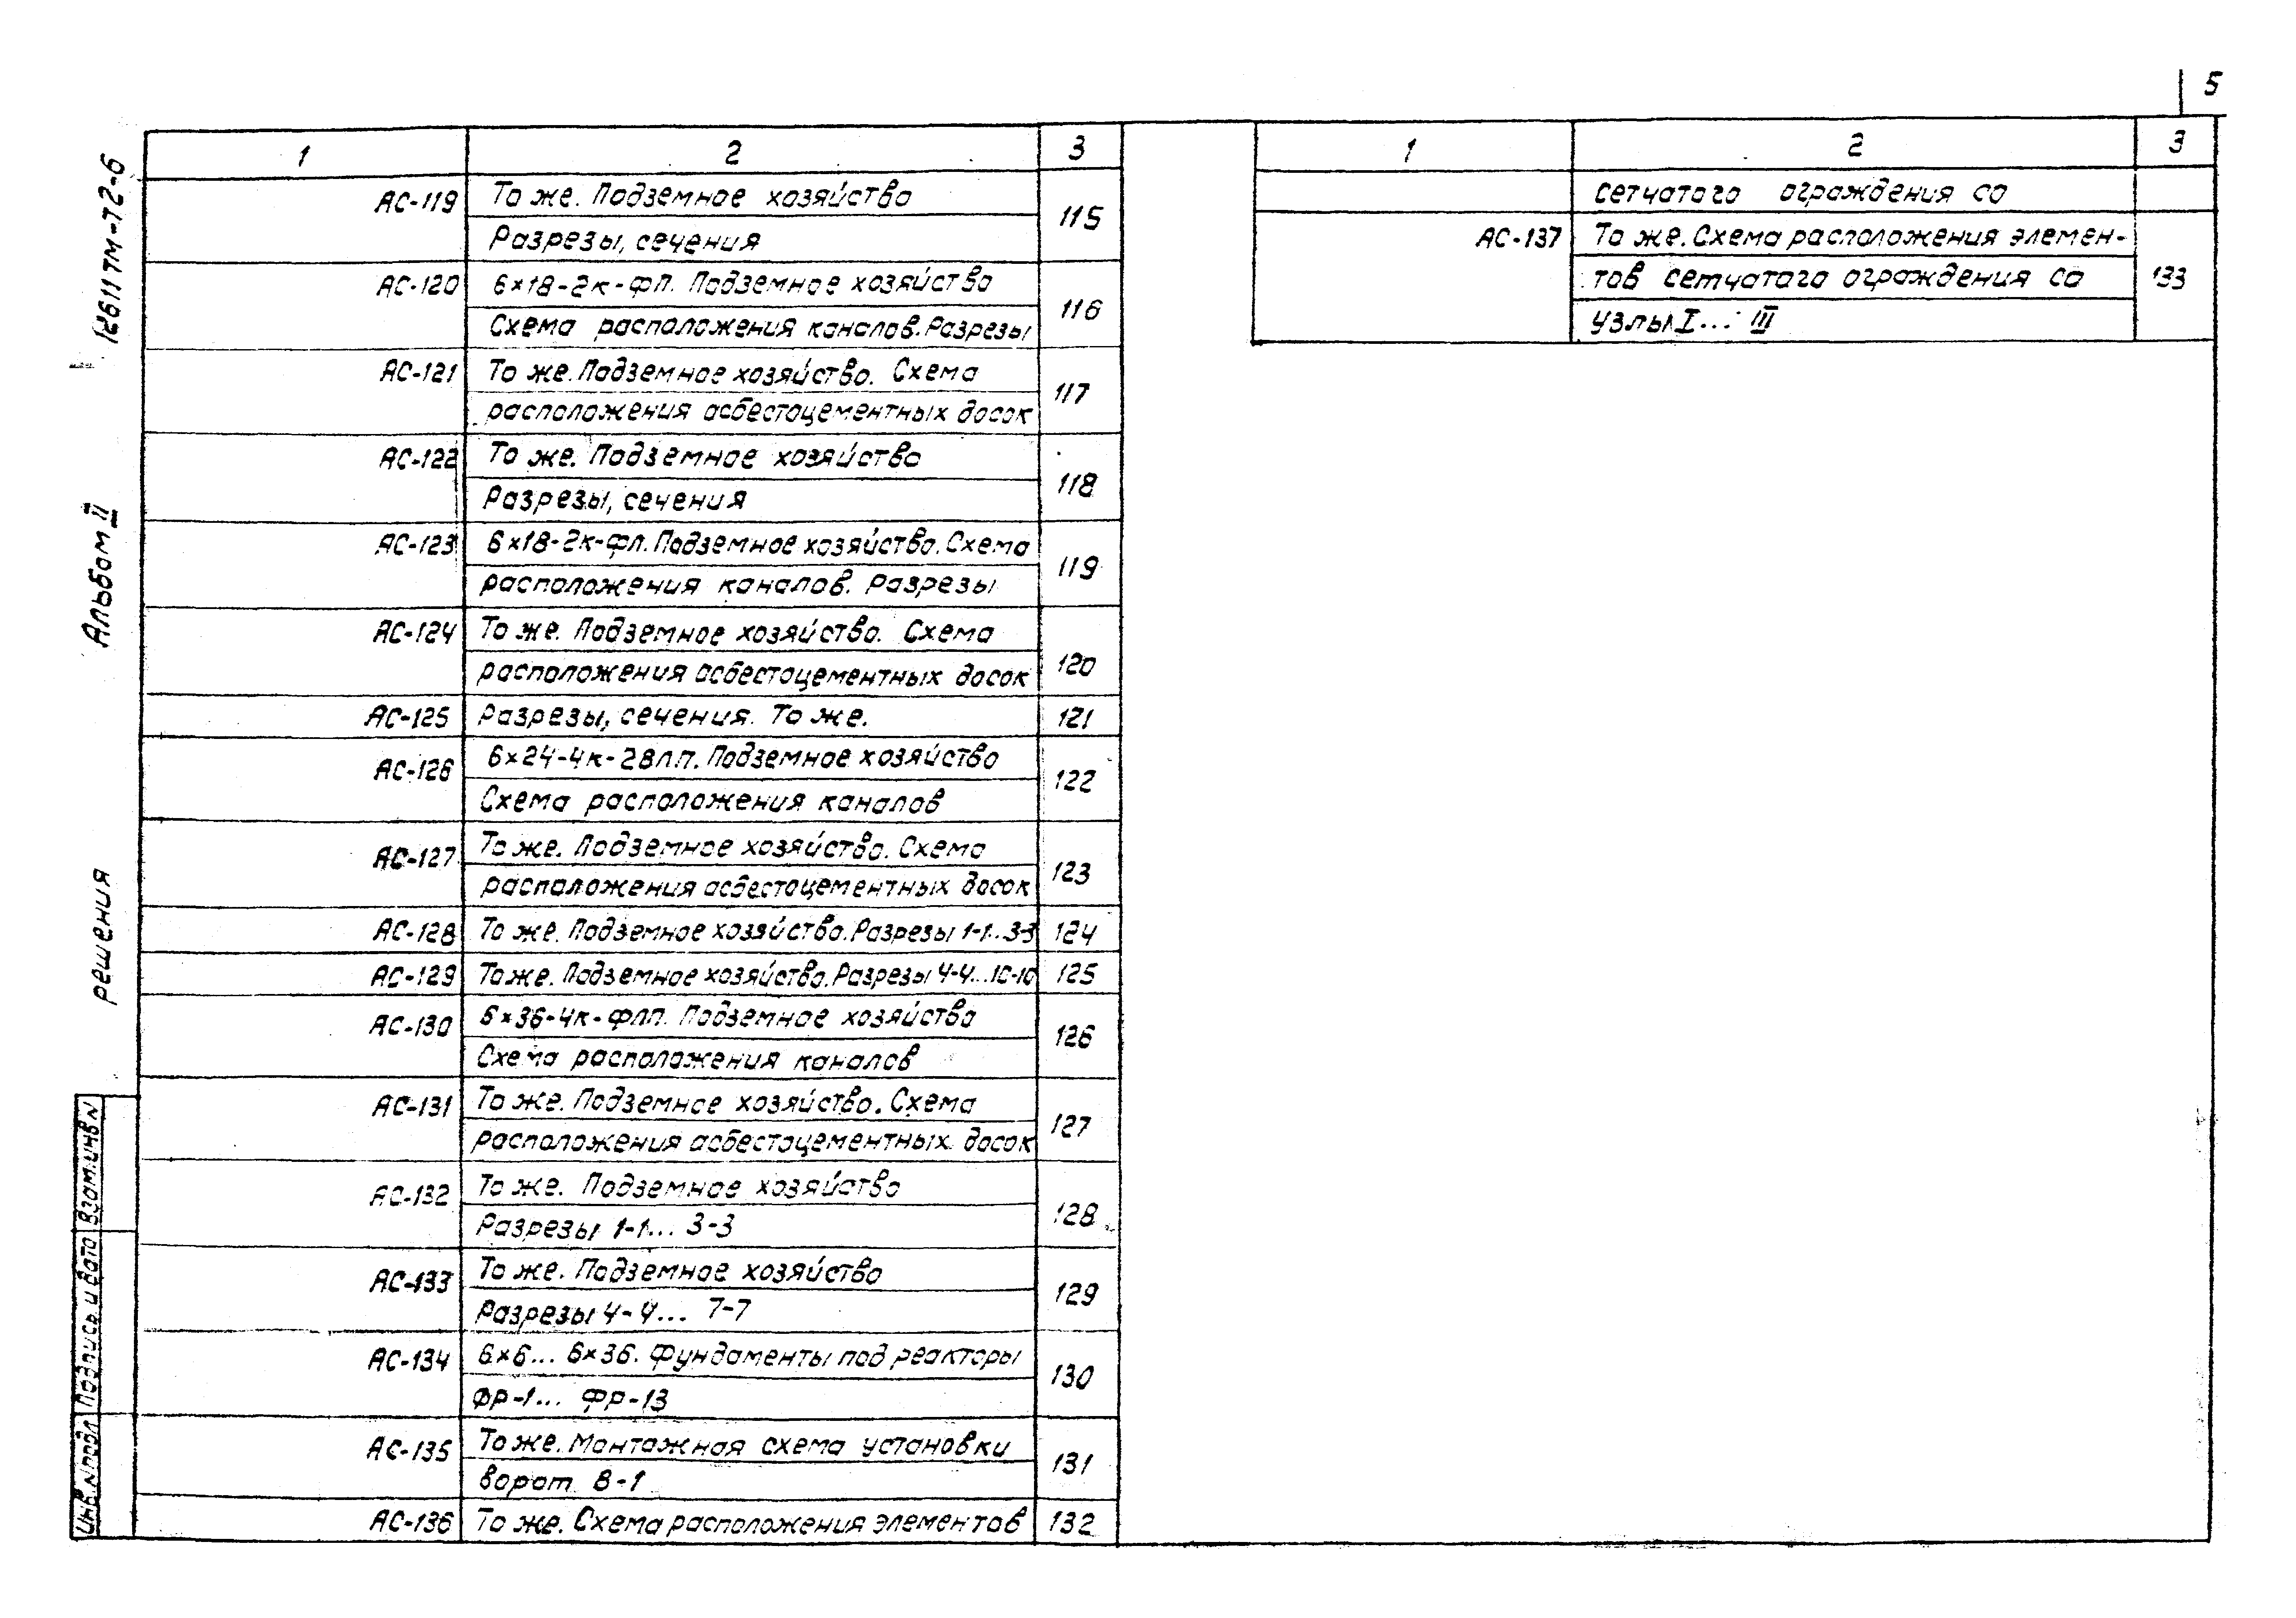 5
12611ТМ-Т2-6
Альбом II
решения
Взам.инв N
Подпись и дата
Инв.Nподл
1 2 3
АС-119 То же. Подземное хозяйство 115
Разрезы, сечения
АС-120 6×18-2к-фл. Подземное хозяйство 116
Схема расположения каналов. Разрезы
АС-121 То же. Подземное хозяйство. Схема 117
расположения асбестоцементных досок
АС-122 То же. Подземное хозяйство 118
Разрезы, сечения
АС-123 6×18-2к-фл. Подземное хозяйство. Схема 119
расположения каналов. Разрезы
АС-124 То же. Подземное хозяйство. Схема 120
расположения асбестоцементных досок
АС-125 Разрезы, сечения. То же. 121
АС-126 6×24-4к-28л.п. Подземное хозяйство 122
Схема расположения каналов
АС-127 То же. Подземное хозяйство. Схема 123
расположения асбестоцементных досок
АС-128 То же. Подземное хозяйство. Разрезы 1-1...3-3 124
АС-129 То же. Подземное хозяйство. Разрезы 4-4...10-10 125
АС-130 6×36-4к-флп. Подземное хозяйство 126
Схема расположения каналов
АС-131 То же. Подземное хозяйство. Схема 127
расположения асбестоцементных досок
АС-132 То же. Подземное хозяйство 128
Разрезы 1-1... 3-3
АС-133 То же. Подземное хозяйство 129
Разрезы 4-4... 7-7
АС-134 6×6... 6×36. Фундаменты под реакторы 130
ФР-1... ФР-13
АС-135 То же. Монтажная схема установки 131
ворот В-1
АС-136 То же. Схема расположения элементов 132
1 2 3
сетчатого ограждения со
АС-137 То же. Схема расположения элемен- 133
тов сетчатого ограждения со
Узлы I... III